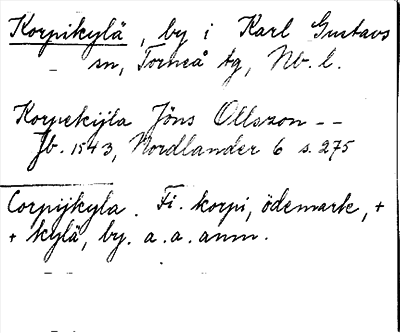 Korpikylä, by i Karl Gustavs
sn, Torneå tg, Nb. l.
Korpekijla Jöns Ollszon --
Jb. 1543, Nordlander 6 s. 275
Corpijkyla. Fi. korpi, ödemark, +
+ kylä, by. a. a. anm.